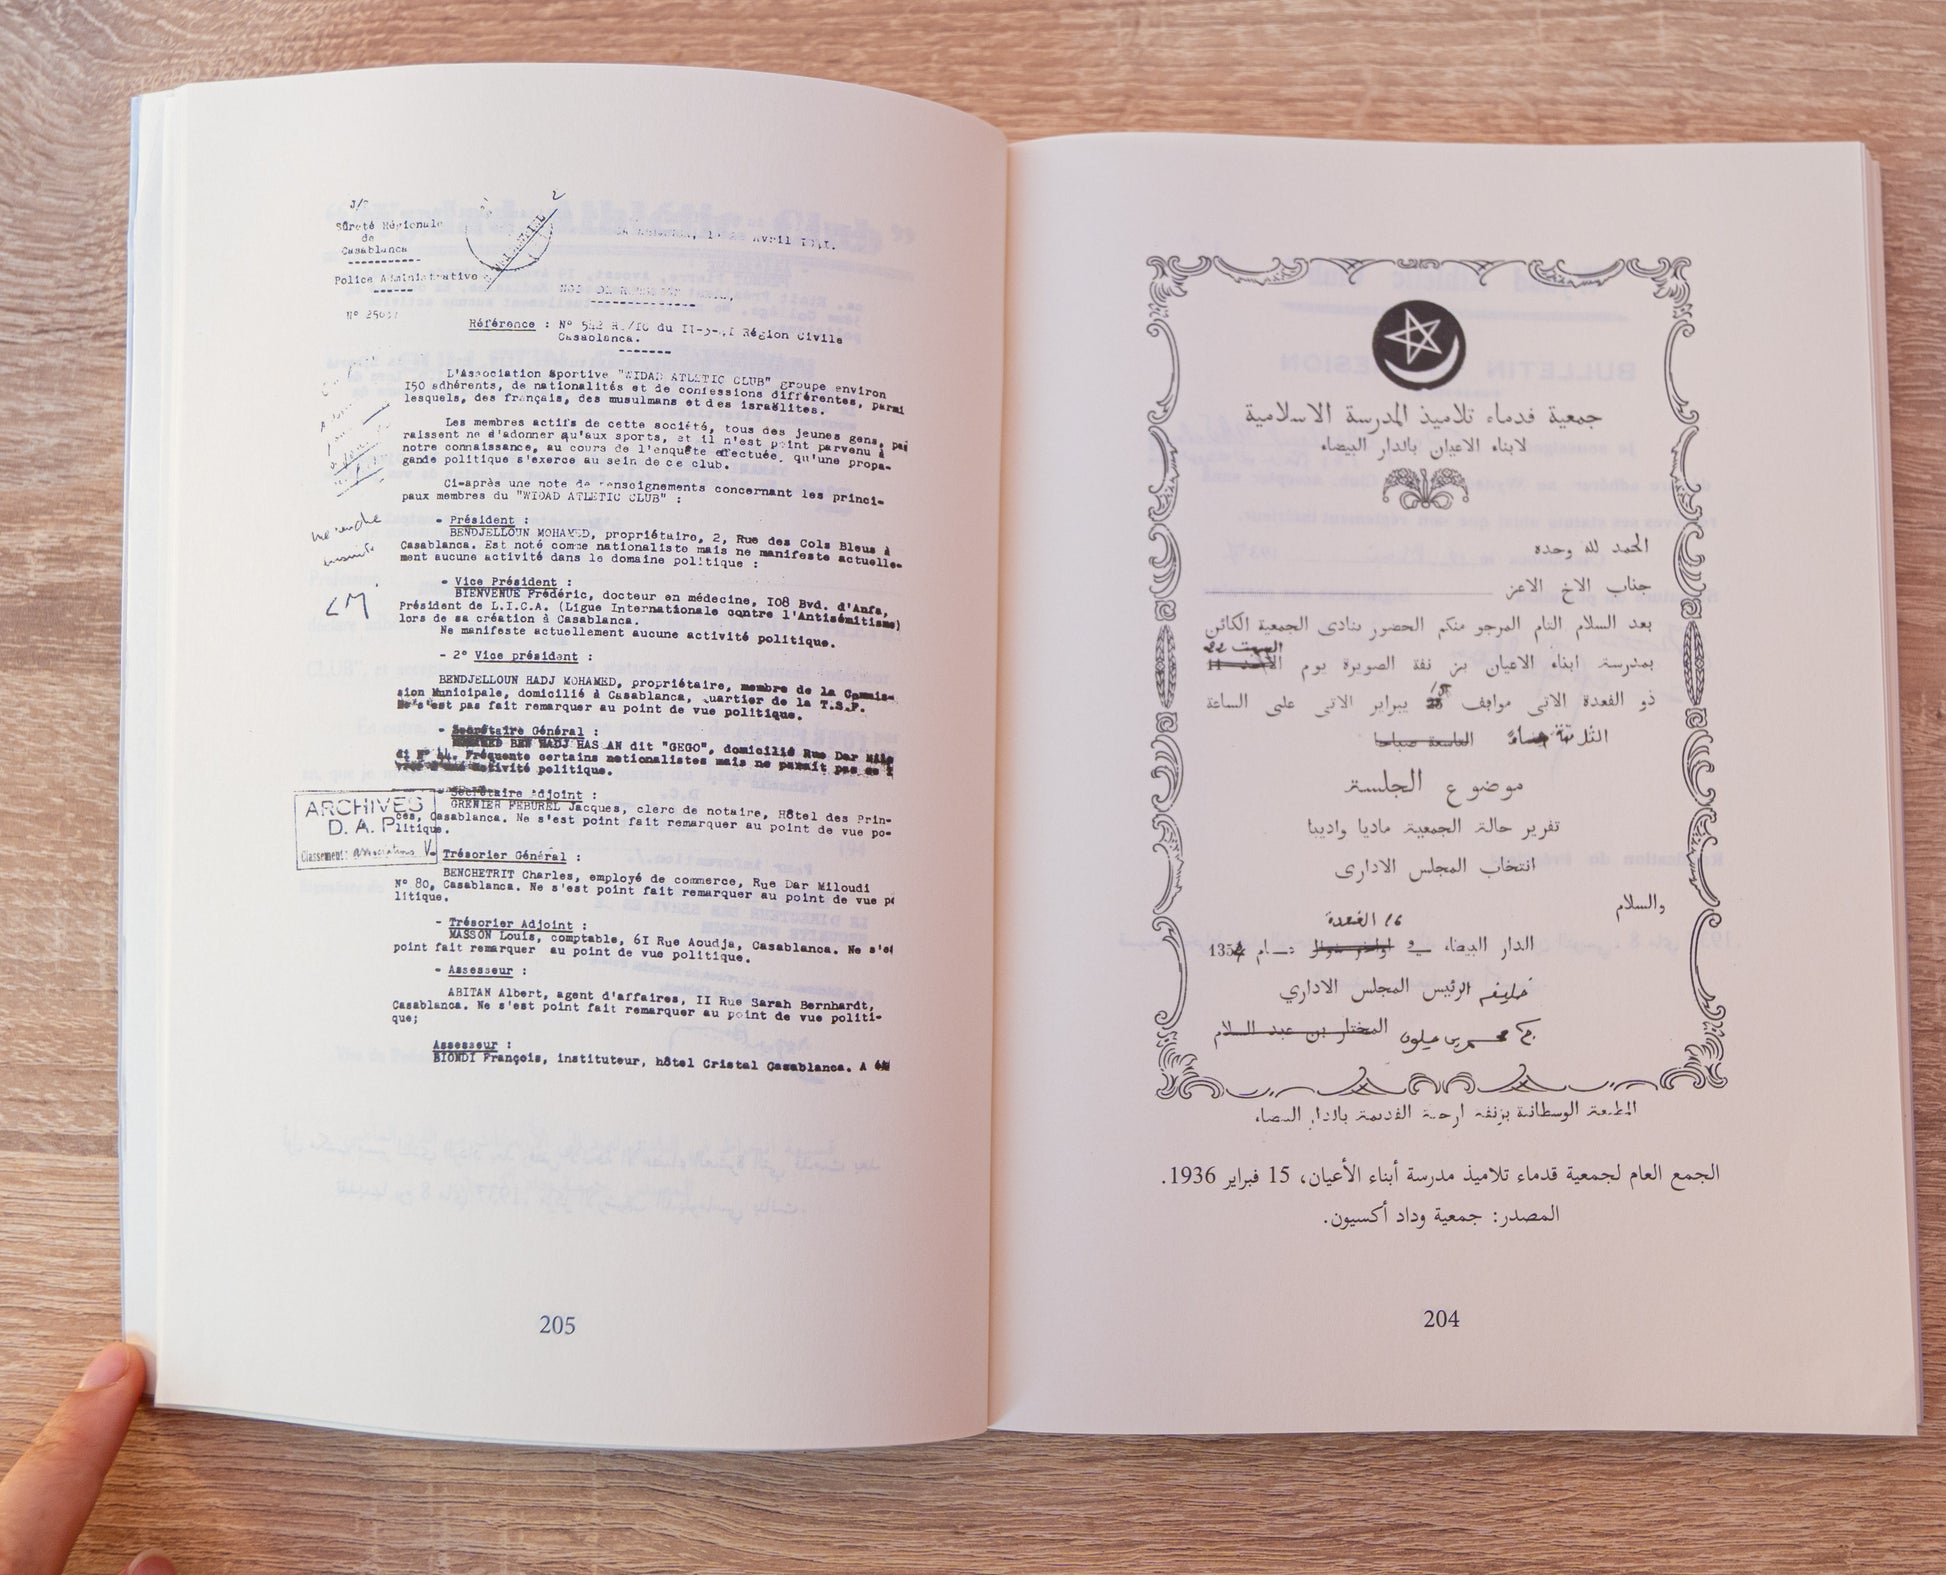 جمعية قدماء تلاميذ المدرسة الاسلامية
لابناء الاعيان بالدار البيضاء
الحمد لله وحده
جناب الاخ الاعز
بعد السلام التام المرجو منكم الحضور بنادى الجمعية الكائن
السبت 22
بمدرسة ابناء الاعيان بزنقة الصويرة يوم
15
ذو القعدة الاتى موافق يبراير الاتى على الساعة
الثلاثة مساء التاسعة صباحا
موضوع الجلسة
تقرير حالة الجمعية ماديا وادبيا
انتخاب المجلس الادارى
والسلام
16 القعدة
الدار البيضاء فى عام 1354
خليفة الرئيس المجلس الاداري
المختار بن عبد السلام
المطبعة الوسطانية بزنقة القديمة بالدار البيضاء
الجمع العام لجمعية قدماء تلاميذ مدرسة أبناء الأعيان، 15 فبراير 1936.
المصدر: جمعية وداد أكسيون.
204
Sûreté Régionale
de
Casablanca
Avril 1941.
Police Administrative
N°
Référence : N° 542 du Région Civile
Casablanca.
L'Association Sportive "WIDAD ATLETIC CLUB" groupe environ
I50 adhérents, de nationalités et de confessions différentes, parmi
lesquels, des français, des musulmans et des israëlites.
Les membres actifs de cette société, tous des jeunes gens, pa
raissent ne s'adonner qu'aux sports, et il n'est point parvenu à
notre connaissance, au cours de l'enquête effectuée, qu'une propa-
gande politique s'exerce au sein de ce club.
Ci-après une note de renseignements concernant les princi-
paux membres du "WIDAD ATLETIC CLUB" :
- Président :
BENDJELLOUN MOHAMED, propriétaire, 2, Rue des Cols Bleus à
Casablanca. Est noté comme nationaliste mais ne manifeste actuelle-
ment aucune activité dans le domaine politique :
- Vice Président :
BIENVENUE Frédéric, docteur en médecine, I08 Bvd. d'Anfa,
Président de L.I.C.A. (Ligue Internationale contre l'Antisémitisme)
lors de sa création à Casablanca.
Ne manifeste actuellement aucune activité politique.
- 2° Vice président :
BENDJELLOUN HADJ MOHAMED, propriétaire, membre de la Commis-
sion Municipale, domicilié à Casablanca, quartier de la T.S.F.
Ne s'est pas fait remarquer au point de vue politique.
- Secrétaire Général :
MOHAMED BEN HADJ HASSAN dit "GEGO", domicilié Rue Dar Milo
di N° 44. Fréquente certains nationalistes mais ne parait pas
activité politique.
- Secrétaire Adjoint :
GRENIER FEBUREL Jacques, clerc de notaire, Hôtel des Prin-
ces, Casablanca. Ne s'est point fait remarquer au point de vue po-
litique.
ARCHIVES
D. A. P.
Classement: associations V.
- Trésorier Général :
BENCHETRIT Charles, employé de commerce, Rue Dar Miloudi
N° 80, Casablanca. Ne s'est point fait remarquer au point de vue po
litique.
- Trésorier Adjoint :
MASSON Louis, comptable, 6I Rue Aoudja, Casablanca. Ne s'e
point fait remarquer au point de vue politique.
- Assesseur :
ABITAN Albert, agent d'affaires, II Rue Sarah Bernhardt,
Casablanca. Ne s'est point fait remarquer au point de vue politi-
que;
Assesseur :
BIONDI François, instituteur, hôtel Cristal Casablanca. A
205